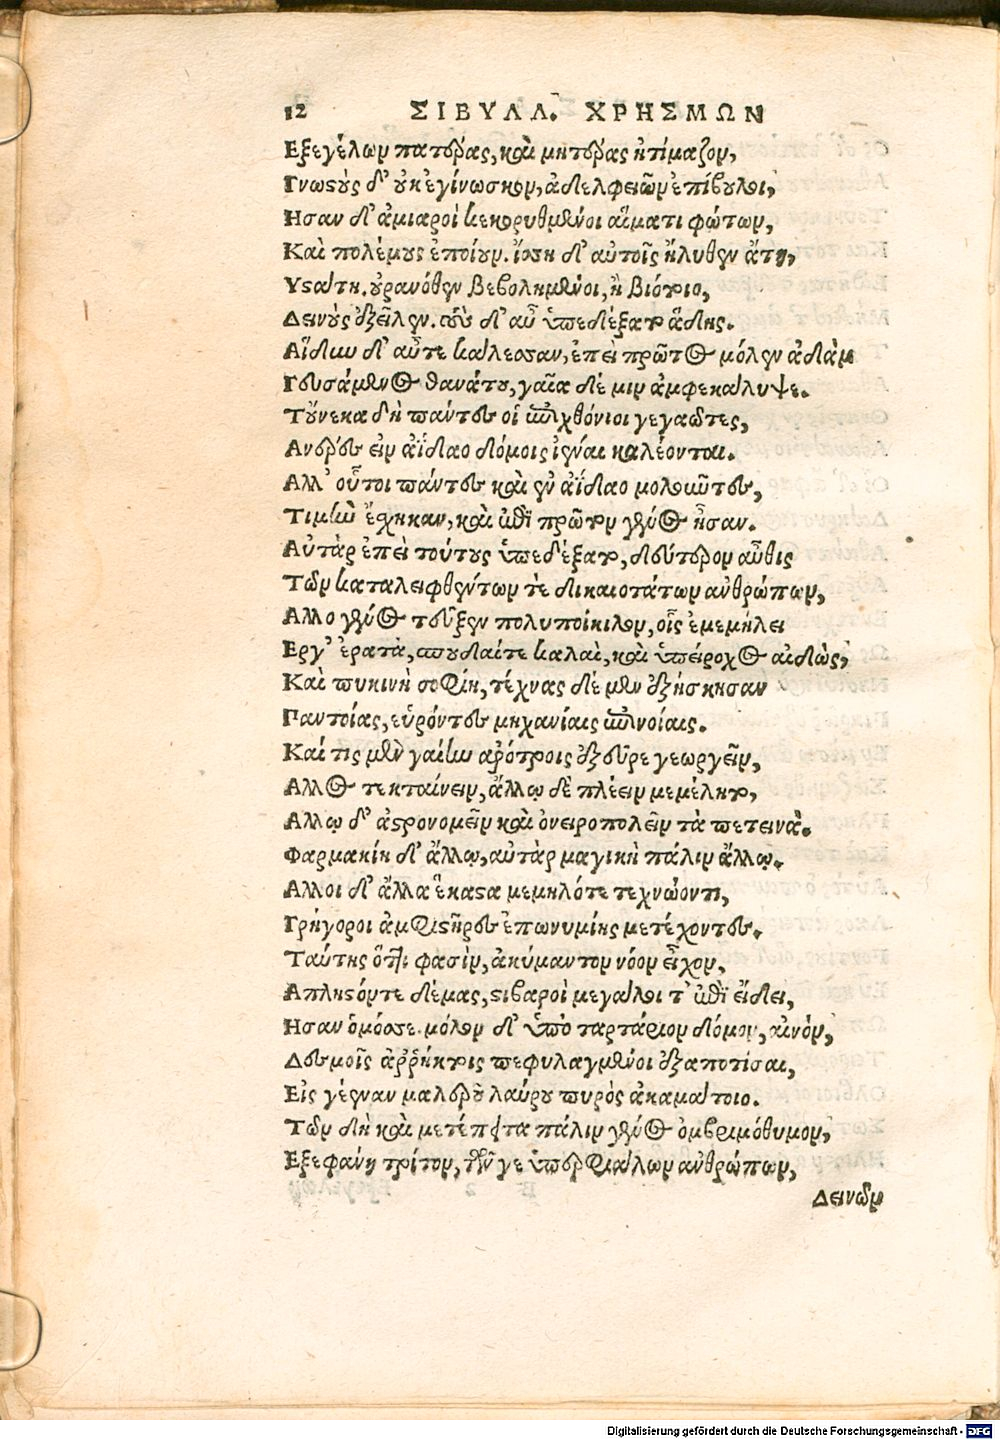 12 ΣΙΒΥΛΛ. ΧΡΗΣΜΩΝ
Εξεγέλων πατέρας, καὶ μητέρας ἠτίμαζον,
Γνωστὺς δ' ὐκ ἐγίνωσκον, ἀδελφειῶν ἐπίβυλοι,
Ησαν δ' ἀμιαροὶ κεκορυθμένοι αἵματι φώτων,
Καὶ πολέμυς ἐποίυν. δ' αὐτοῖς ἤλυθεν ἄτη,
Υστάτη. ὐρανόθεν βεβολημένοι, ἢ βιότοιο,
Δεινὺς ἐξεῖλεν. τὺς δ' αὖ ὑπεδέξατο ᾅδης.
Αἵδην δ' αὖτε καλεσαν, ἐπεὶ πρῶτος μόλεν ἀδὰμ
Γευσάμενος θανάτυ, γαῖα δέ μιν ἀμφεκαλυψε.
Τὔνεκα δὴ πάντες οἱ ἐπιχθόνιοι γεγαῶτες,
Ανδρες ειν ἀΐδαο δόμοις ἰέναι καλέονται.
Αλλ' οὗτοι πάντες καὶ ἐν ἀΐδαο μολοῦντες,
Τιμὴν ἔχηκαν, καὶ ἐπεὶ πρῶτον γένος ἦσαν.
Αὐτὰρ ἐπεὶ τούτυς ὑπεδέξατο, δεύτερον αὖθις
Τῶν καταλειφθέντων τὲ δικαιοτάτων ἀνθρώπων,
Αλλο γένος τεῦξεν πολυποίκιλον, οἷς ἐμεμήλει
Εργ' ἐρατὰ, σπουδαίτε καλαὶ, καὶ ὑπείροχος αἰδὼς,
Καὶ πυκινὴ σοφίη, τέχνας δέ μεν ἐξήσκησαν
Παντοίας, εὑρόντες μηχανίαις ἐπινοίαις.
Καί τις μὲν γαίην ἀρότροις ἐξεῦρε γεωργεῖν,
Αλλος τεκταίνειν, ἄλλῳ δὲ πλέειν μεμέλητο,
Αλλῳ δ' ἀστρονομεῖν καὶ ὀνειροπολεῖν τὰ πετεινὰ.
Φαρμακίη δ' ἄλλῳ, αὐτὰρ μαγικὴ πάλιν ἄλλῳ.
Αλλοι δ' ἄλλα ἕκαστα μεμηλότε τεχνώοντι,
Γρήγοροι ἀμφιστῆρες ἐπωνυμίης μετέχοντες.
Ταύτης ὅτι φασὶν, ἀκύμαντον νόον εἶχον,
Απληστόντε δέμας, στιβαροὶ μεγάλοι τ' ἐπὶ εἴδει,
Ησαν ὁμόοσε. μόλον δ' ὑπὸ ταρτάριον δόμον, αἰνὸν,
Δεσμοῖς ἀῤῥήκτοις πεφυλαγμένοι ἐξαποτίσαι,
Εἰς γέεναν μαλεροῦ λαύρυ πυρὸς ἀκαμάτοιο.
Τῶν δὴ καὶ μετέπειτα πάλιν γένος ὀμβριμόθυμον,
Εξεφάνη τρίτον, γε ὑπερφιάλων ἀνθρώπων,
Δεινῶν
Digitalisierung gefördert durch die Deutsche Forschungsgemeinschaft - DFG